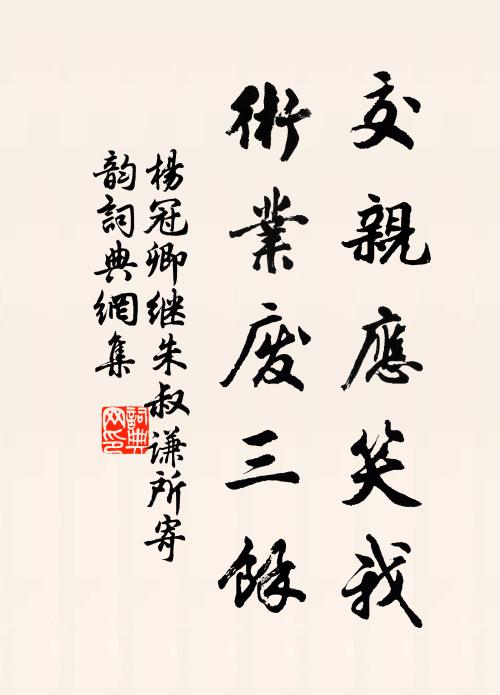 交親應笑我
術業废三餘
楊冠卿继朱叔谦所寄
韵詞典網集
詞典
网印